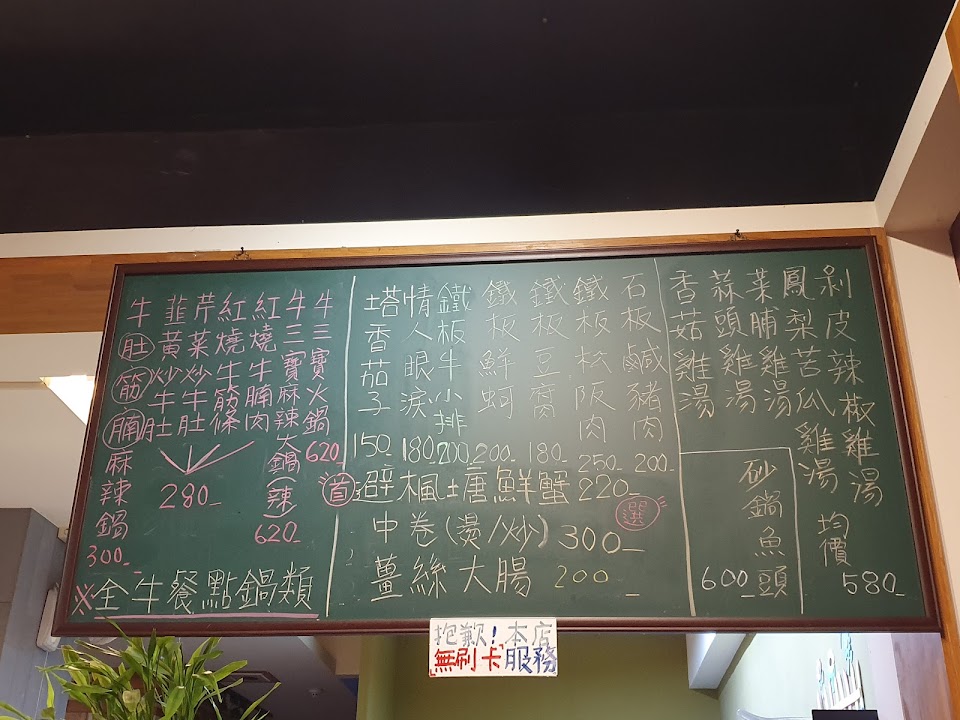 剝皮辣椒雞湯
鳳梨苦瓜雞湯
菜脯雞湯
蒜頭雞湯
香菇雞湯
均價
580
砂鍋魚頭
600
石板鹹豬肉 200
鐵板松阪肉 250
鐵板豆腐 180
鐵板鮮蚵 200
鐵板牛小排 200
情人眼淚 180
塔香茄子 150
首選
避楓塘鮮蟹 220
中卷(燙/炒) 300
薑絲大腸 200
牛三寶火鍋 620
牛三寶麻辣大鍋(辣) 620
紅燒牛腩肉
紅燒牛筋條
芹菜炒牛肚
韮黃炒牛肚
280
牛肚筋腩麻辣鍋 300
※全牛餐點鍋類
抱歉!本店
無刷卡服務